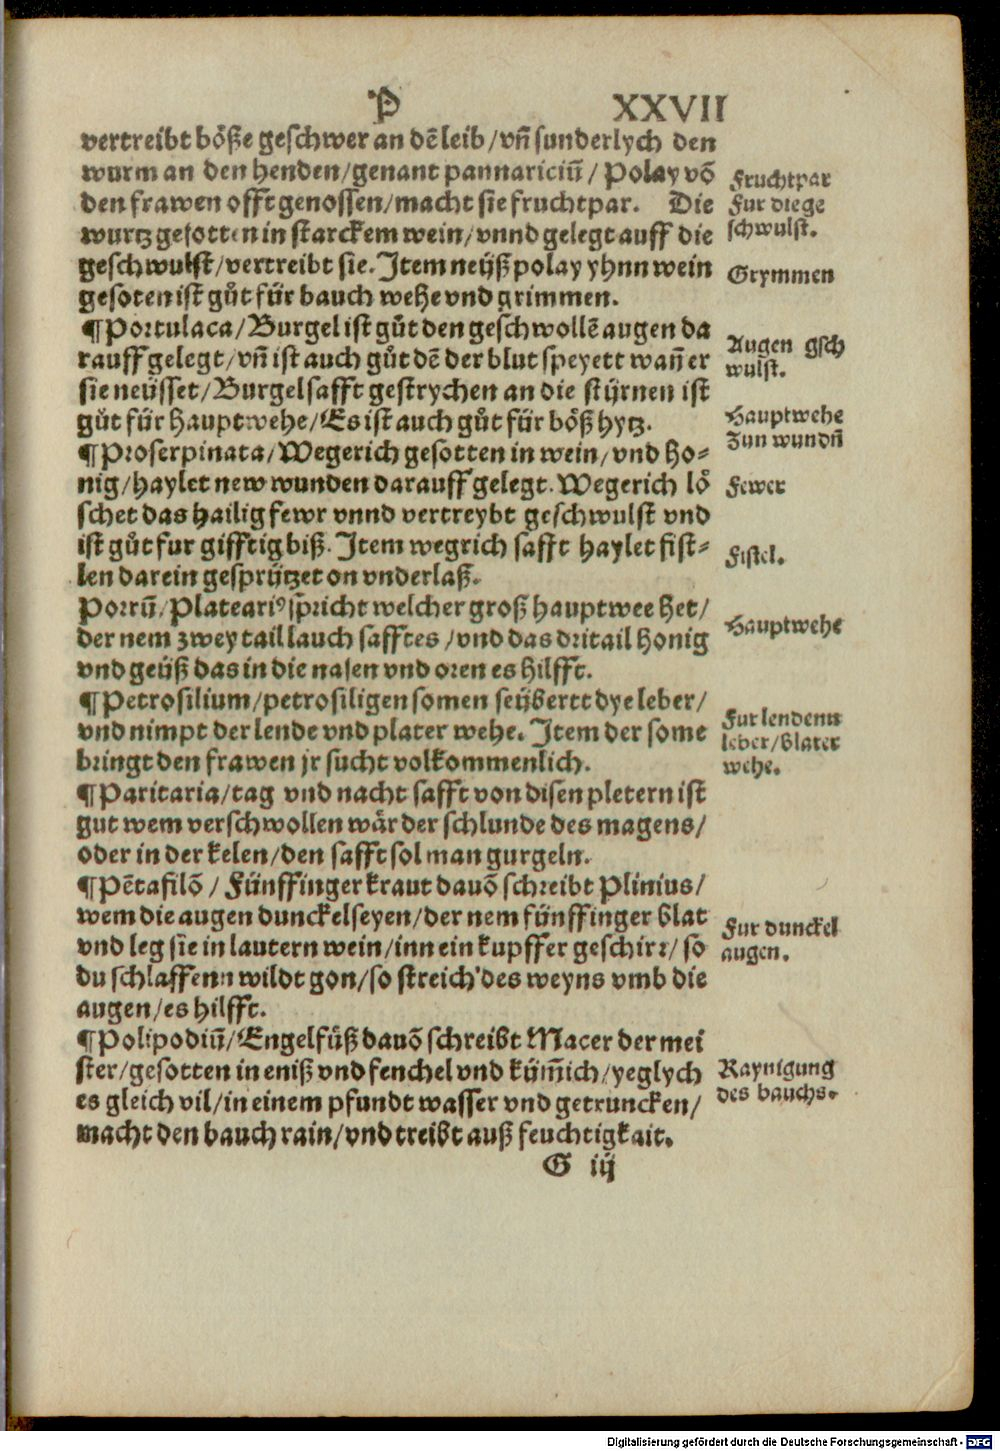 P XXVII
vertreibt böße geschwer an dē leib/vn̄ sunderlych den
wurm an den henden/genant pannariciū/Polay vō
den frawen offt genossen/macht sie fruchtpar. Die
wurtz gesotten in starckem wein/vnnd gelegt auff die
geschwulst/vertreibt sie. Item neüß polay yhnn wein
gesoten ist gůt für bauch wehe vnd grimmen.
¶Portulaca/Burgel ist gůt den geschwollē augen da
rauff gelegt/vn̄ ist auch gůt dē der blut speyett wan̄ er
sie neüsset/Burgelsafft gestrychen an die stÿrnen ist
gůt für hauptwehe/Es ist auch gůt für böß hytz.
¶Proserpinata/Wegerich gesotten in wein/vnd ho⸗
nig/haylet new wunden darauff gelegt. Wegerich lö
schet das hailig fewr vnnd vertreybt geschwulst vnd
ist gůt fur gifftig biß. Item wegrich safft haylet fist⸗
len darein gesprützet on vnderlaß.
Porrū/Plateariꝰ spricht welcher groß hauptwee het/
der nem zwey tail lauch safftes/vnd das dritail honig
vnd geüß das in die nasen vnd oren es hilfft.
¶Petrosilium/petrosiligen somen seübertt dye leber/
vnd nimpt der lende vnd plater wehe. Item der some
bringt den frawen jr sucht volkommenlich.
¶Paritaria/tag vnd nacht safft von disen pletern ist
gut wem verschwollen wär der schlunde des magens/
oder in der kelen/den safft sol man gurgeln.
¶Pētafilō/Fünffinger kraut dauō schreibt Plinius/
wem die augen dunckel seyen/der nem fünffinger blat
vnd leg sie in lautern wein/inn ein kupffer geschirr/so
du schlaffenn wildt gon/so streich des weyns vmb die
augen/es hilfft.
¶Polipodiū/Engelfüß dauō schreibt Macer der mei
ster/gesotten in eniß vnd fenchel vnd küm̄ich/yeglych
es gleich vil/in einem pfundt wasser vnd getruncken/
macht den bauch rain/vnd treibt auß feuchtigkait.
G iij
Fruchtpar
Fur die ge
schwulst.
Grymmen
Augen gsch
wulst.
Hauptwehe
Zun wundn̄
Fewer
Fistel.
Hauptwehe
Fur lendenn
leber/blater
wehe.
Fur dunckel
augen.
Raynigung
des bauchs.
Digitalisierung gefördert durch die Deutsche Forschungsgemeinschaft - DFG